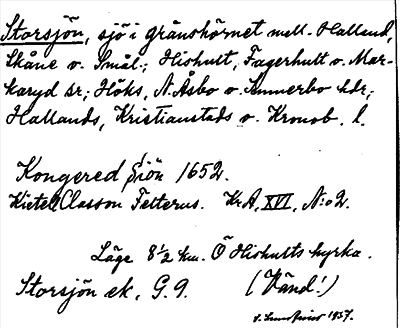 Storsjön, sjö i gränshörnet mell. Halland,
Skåne o. Smål.; Hishult, Fagerhult o. Mar-
karyd sr; Höks, N. Åsbo o. Sunnerbo hdr;
Hallands, Kristianstads o. Kronob. l.
Kongered Siön 1652.
Kietel Classon Felterus. Kr.A, XVI, N:o 2.
Läge 8 1/2 km. Ö Hishults kyrka.
Storsjön ek. G. 9. (Vänd!)
1937.